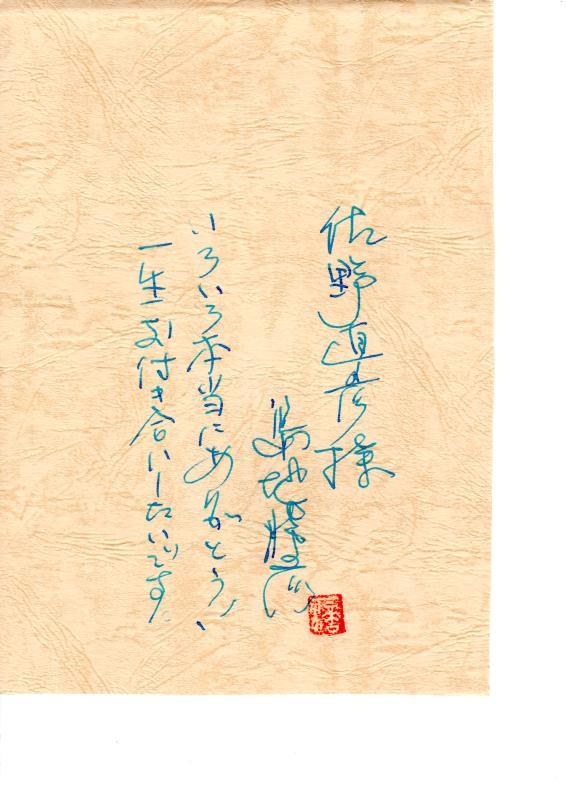 佐野直彦様
島地勝彦
いろいろ本当にありがとう、
一生お付き合いしたいです